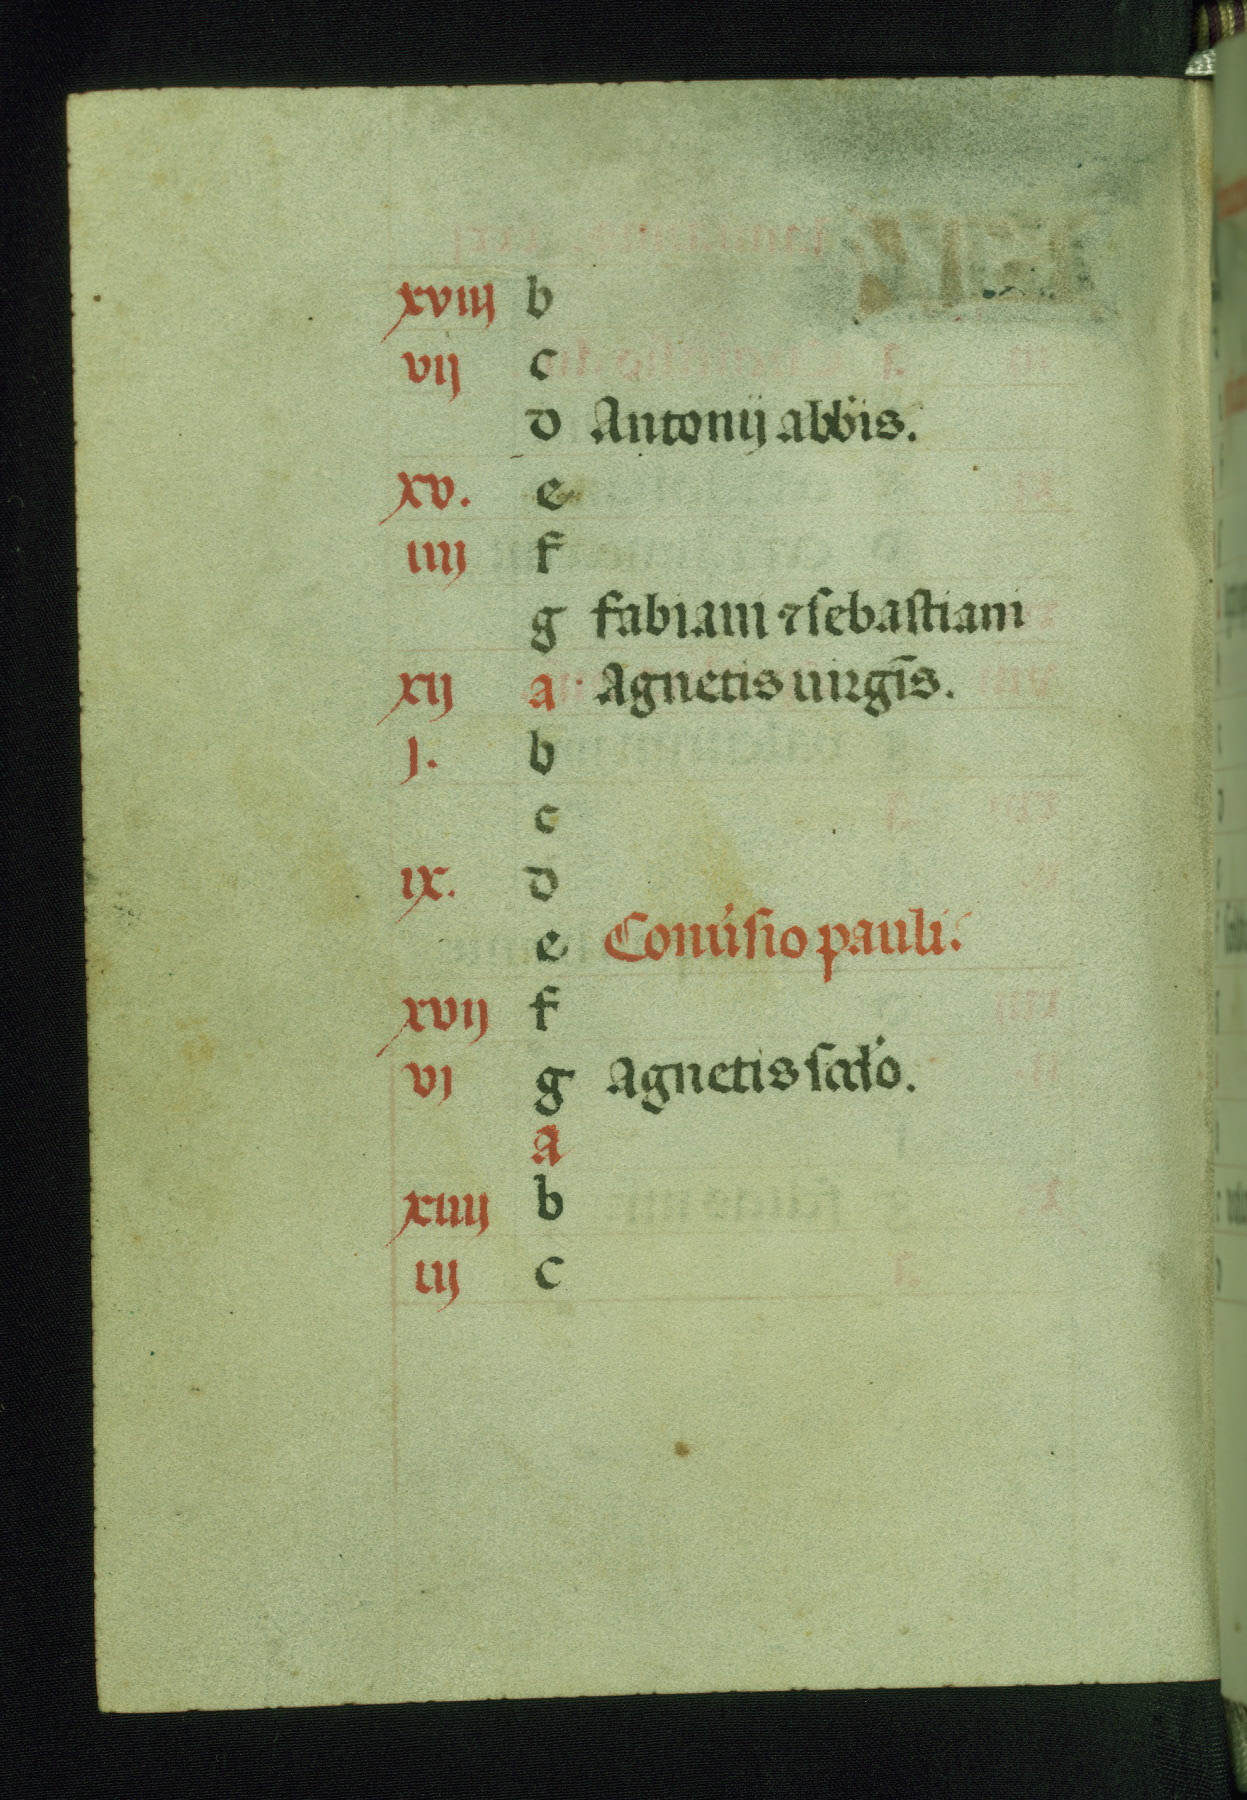 xviij b
vij c
d Antonij abb'is.
xv. e
iiij f
g fabiani ⁊ sebastiani
xij a Agnetis uirgīs.
j. b
c
ix. d
e Conu'sio pauli.
xvij f
vj g Agnetis scd'o.
a
xiiij b
iij c